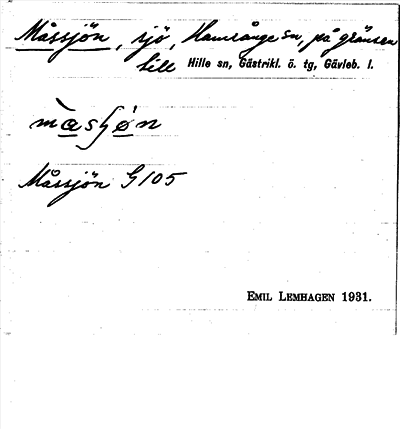 Måssjön, sjö, Hamrånge sn, på gränsen
till Hille sn, Gästrikl. ö. tg, Gävleb. l.
Måssjön G 105
EMIL LEMHAGEN 1931.